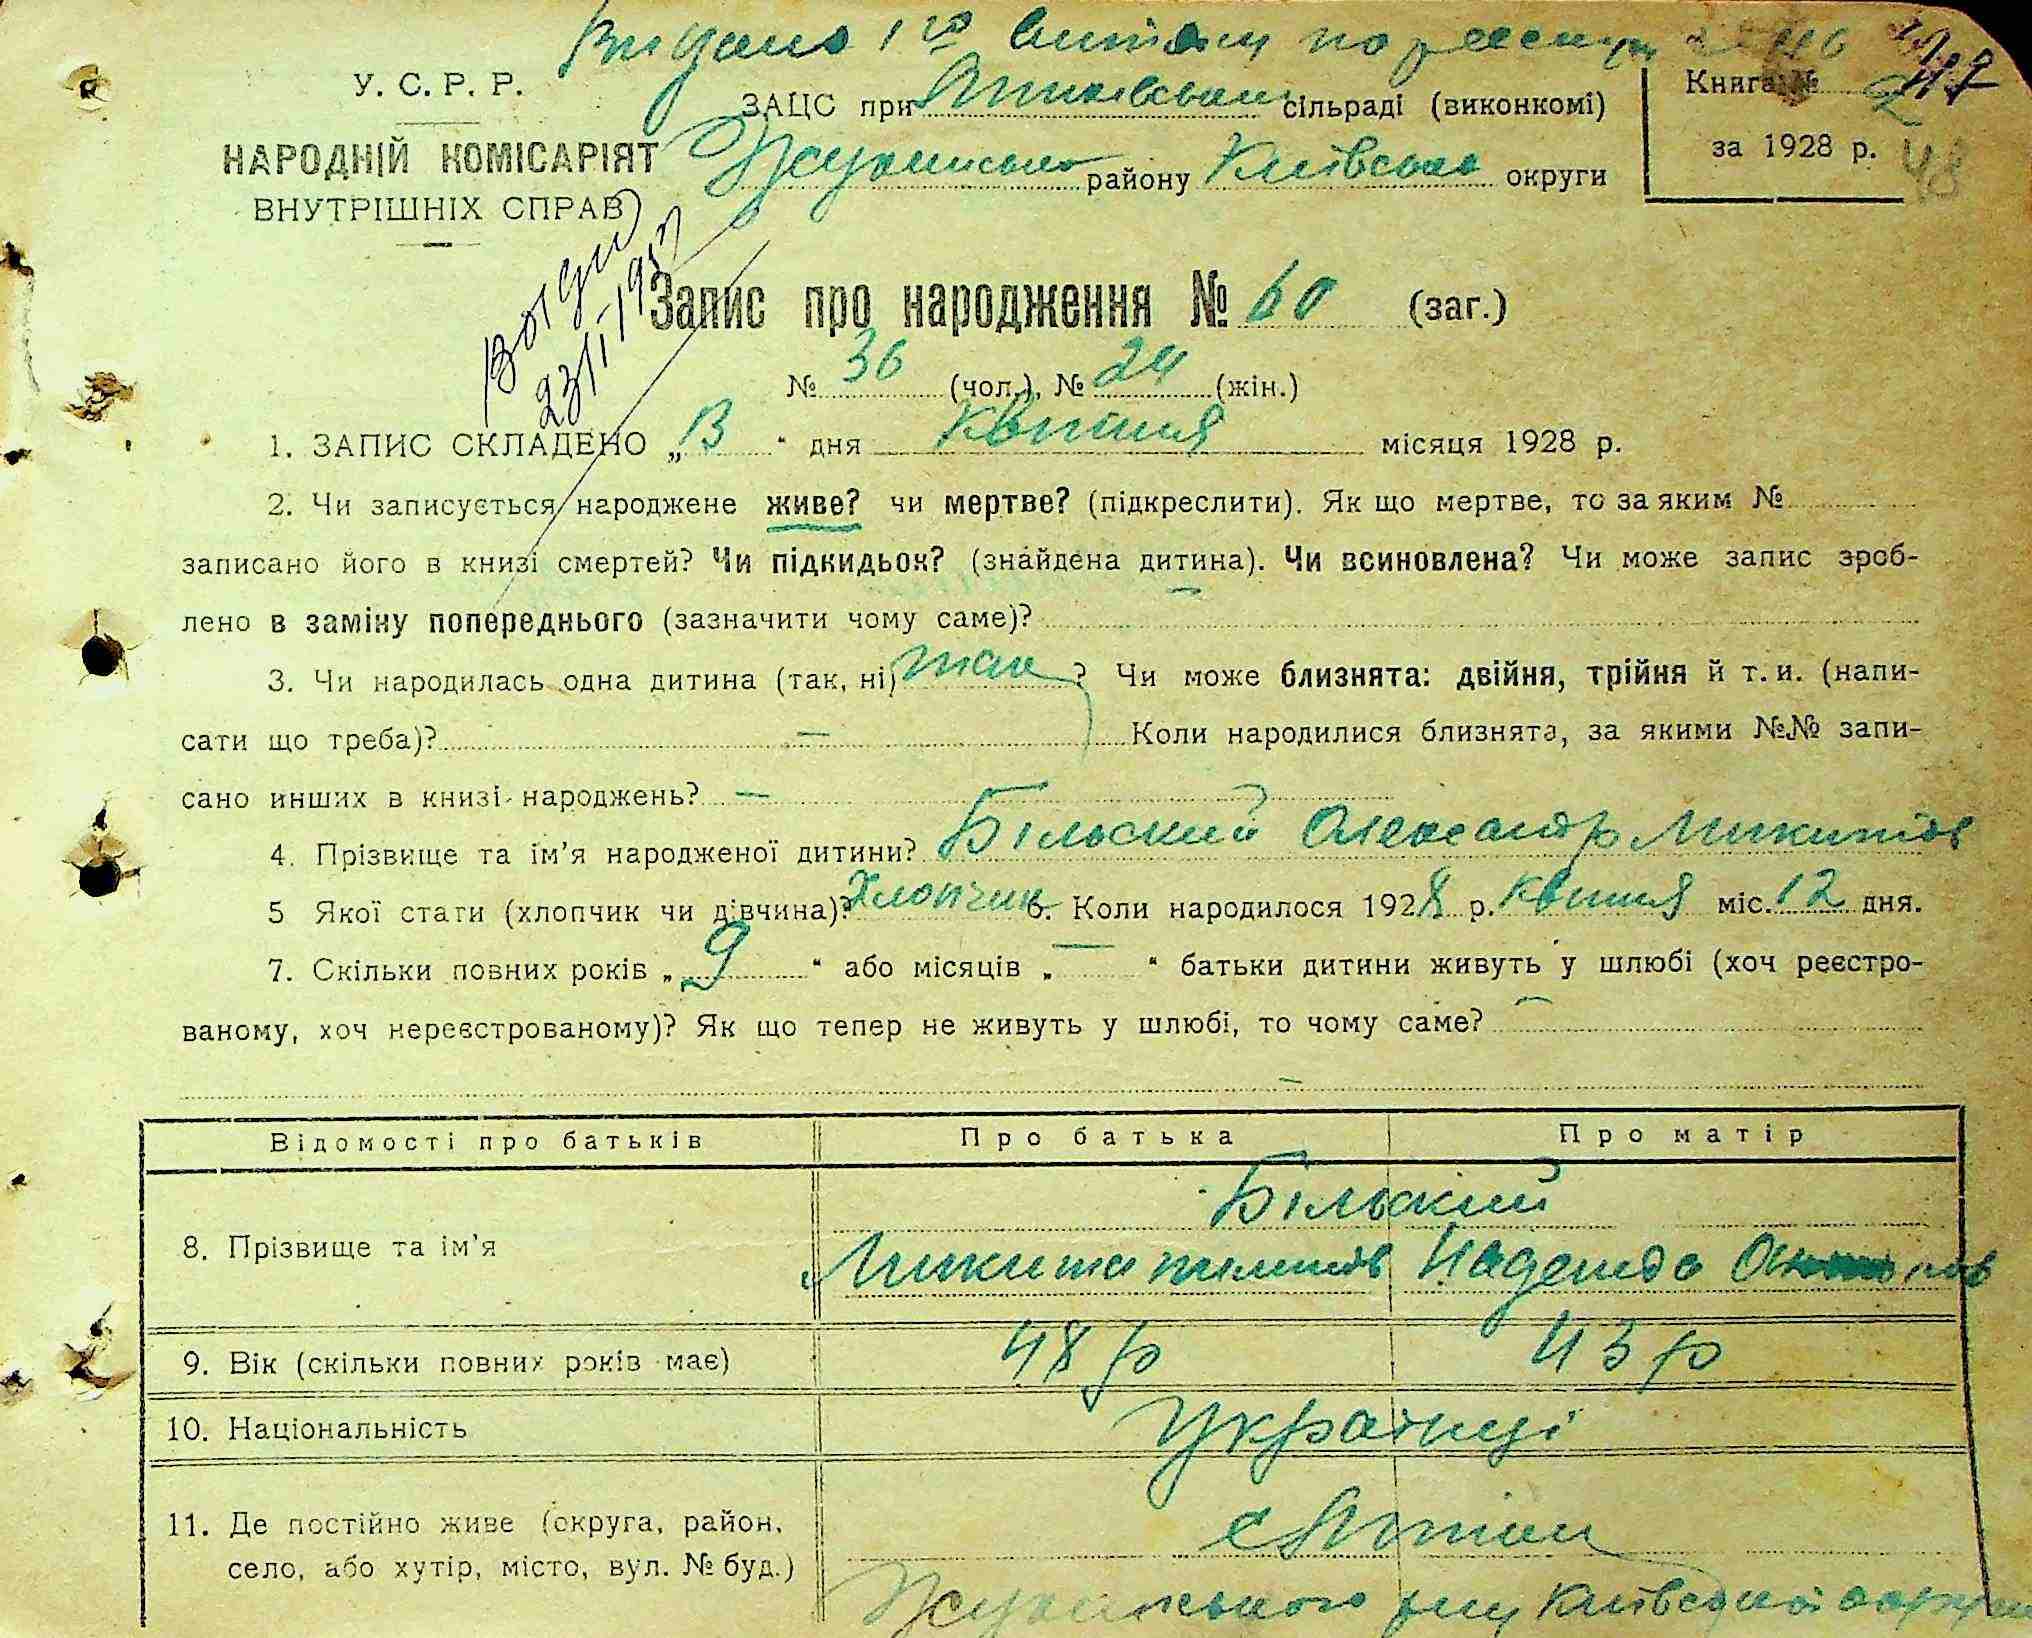 Видано 1го витяги по
У. С. Р. Р.
НАРОДНІЙ КОМІСАРІЯТ
ВНУТРІШНІХ СПРАВ
ЗАЦС при сільраді (виконкомі)
району Київської округи
Книга № 2
за 1928 р.
47
48
23/І-195
Запис про народження № 60 (заг.)
№ 36 (чол.), № 24 (жін.)
1. ЗАПИС СКЛАДЕНО „13“ дня квітня місяця 1928 р.
2. Чи записується народжене живе? чи мертве? (підкреслити). Як що мертве, то за яким №
записано його в книзі смертей? Чи підкидьок? (знайдена дитина). Чи всиновлена? Чи може запис зроб-
лено в заміну попереднього (зазначити чому саме)?
3. Чи народилась одна дитина (так, ні) так ? Чи може близнята: двійня, трійня й т. и. (напи-
сати що треба)? — Коли народилися близнята, за якими №№ запи-
сано инших в книзі народжень? —
4. Прізвище та ім’я народженої дитини? Більский Олександр Микитов
5 Якої стати (хлопчик чи дівчина)? Хлопчик 6. Коли народилося 1928 р. квітня міс. 12 дня.
7. Скільки повних років „9“ або місяців „—“ батьки дитини живуть у шлюбі (хоч реєстро-
ваному, хоч нереєстрованому)? Як що тепер не живуть у шлюбі, то чому саме? —
Відомості про батьків Про батька Про матір
8. Прізвище та ім’я Більский
Микита Надежда
9. Вік (скільки повних років має) 48 р 43 р
10. Національність Українці
11. Де постійно живе (округа, район,
село, або хутір, місто, вул. № буд.)